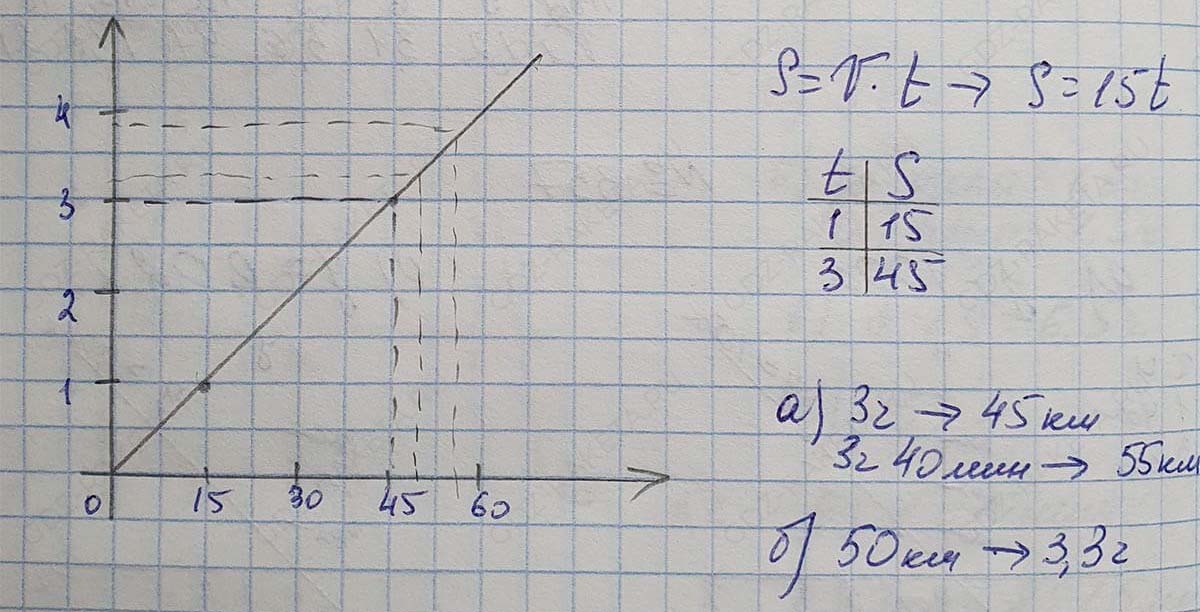 4
3
2
1
0 15 30 45 60
S = V · t → S = 15t
t | S
1 | 15
3 | 45
а) 3г → 45 км
3г 40 мин → 55 км
б) 50 км → 3,3г